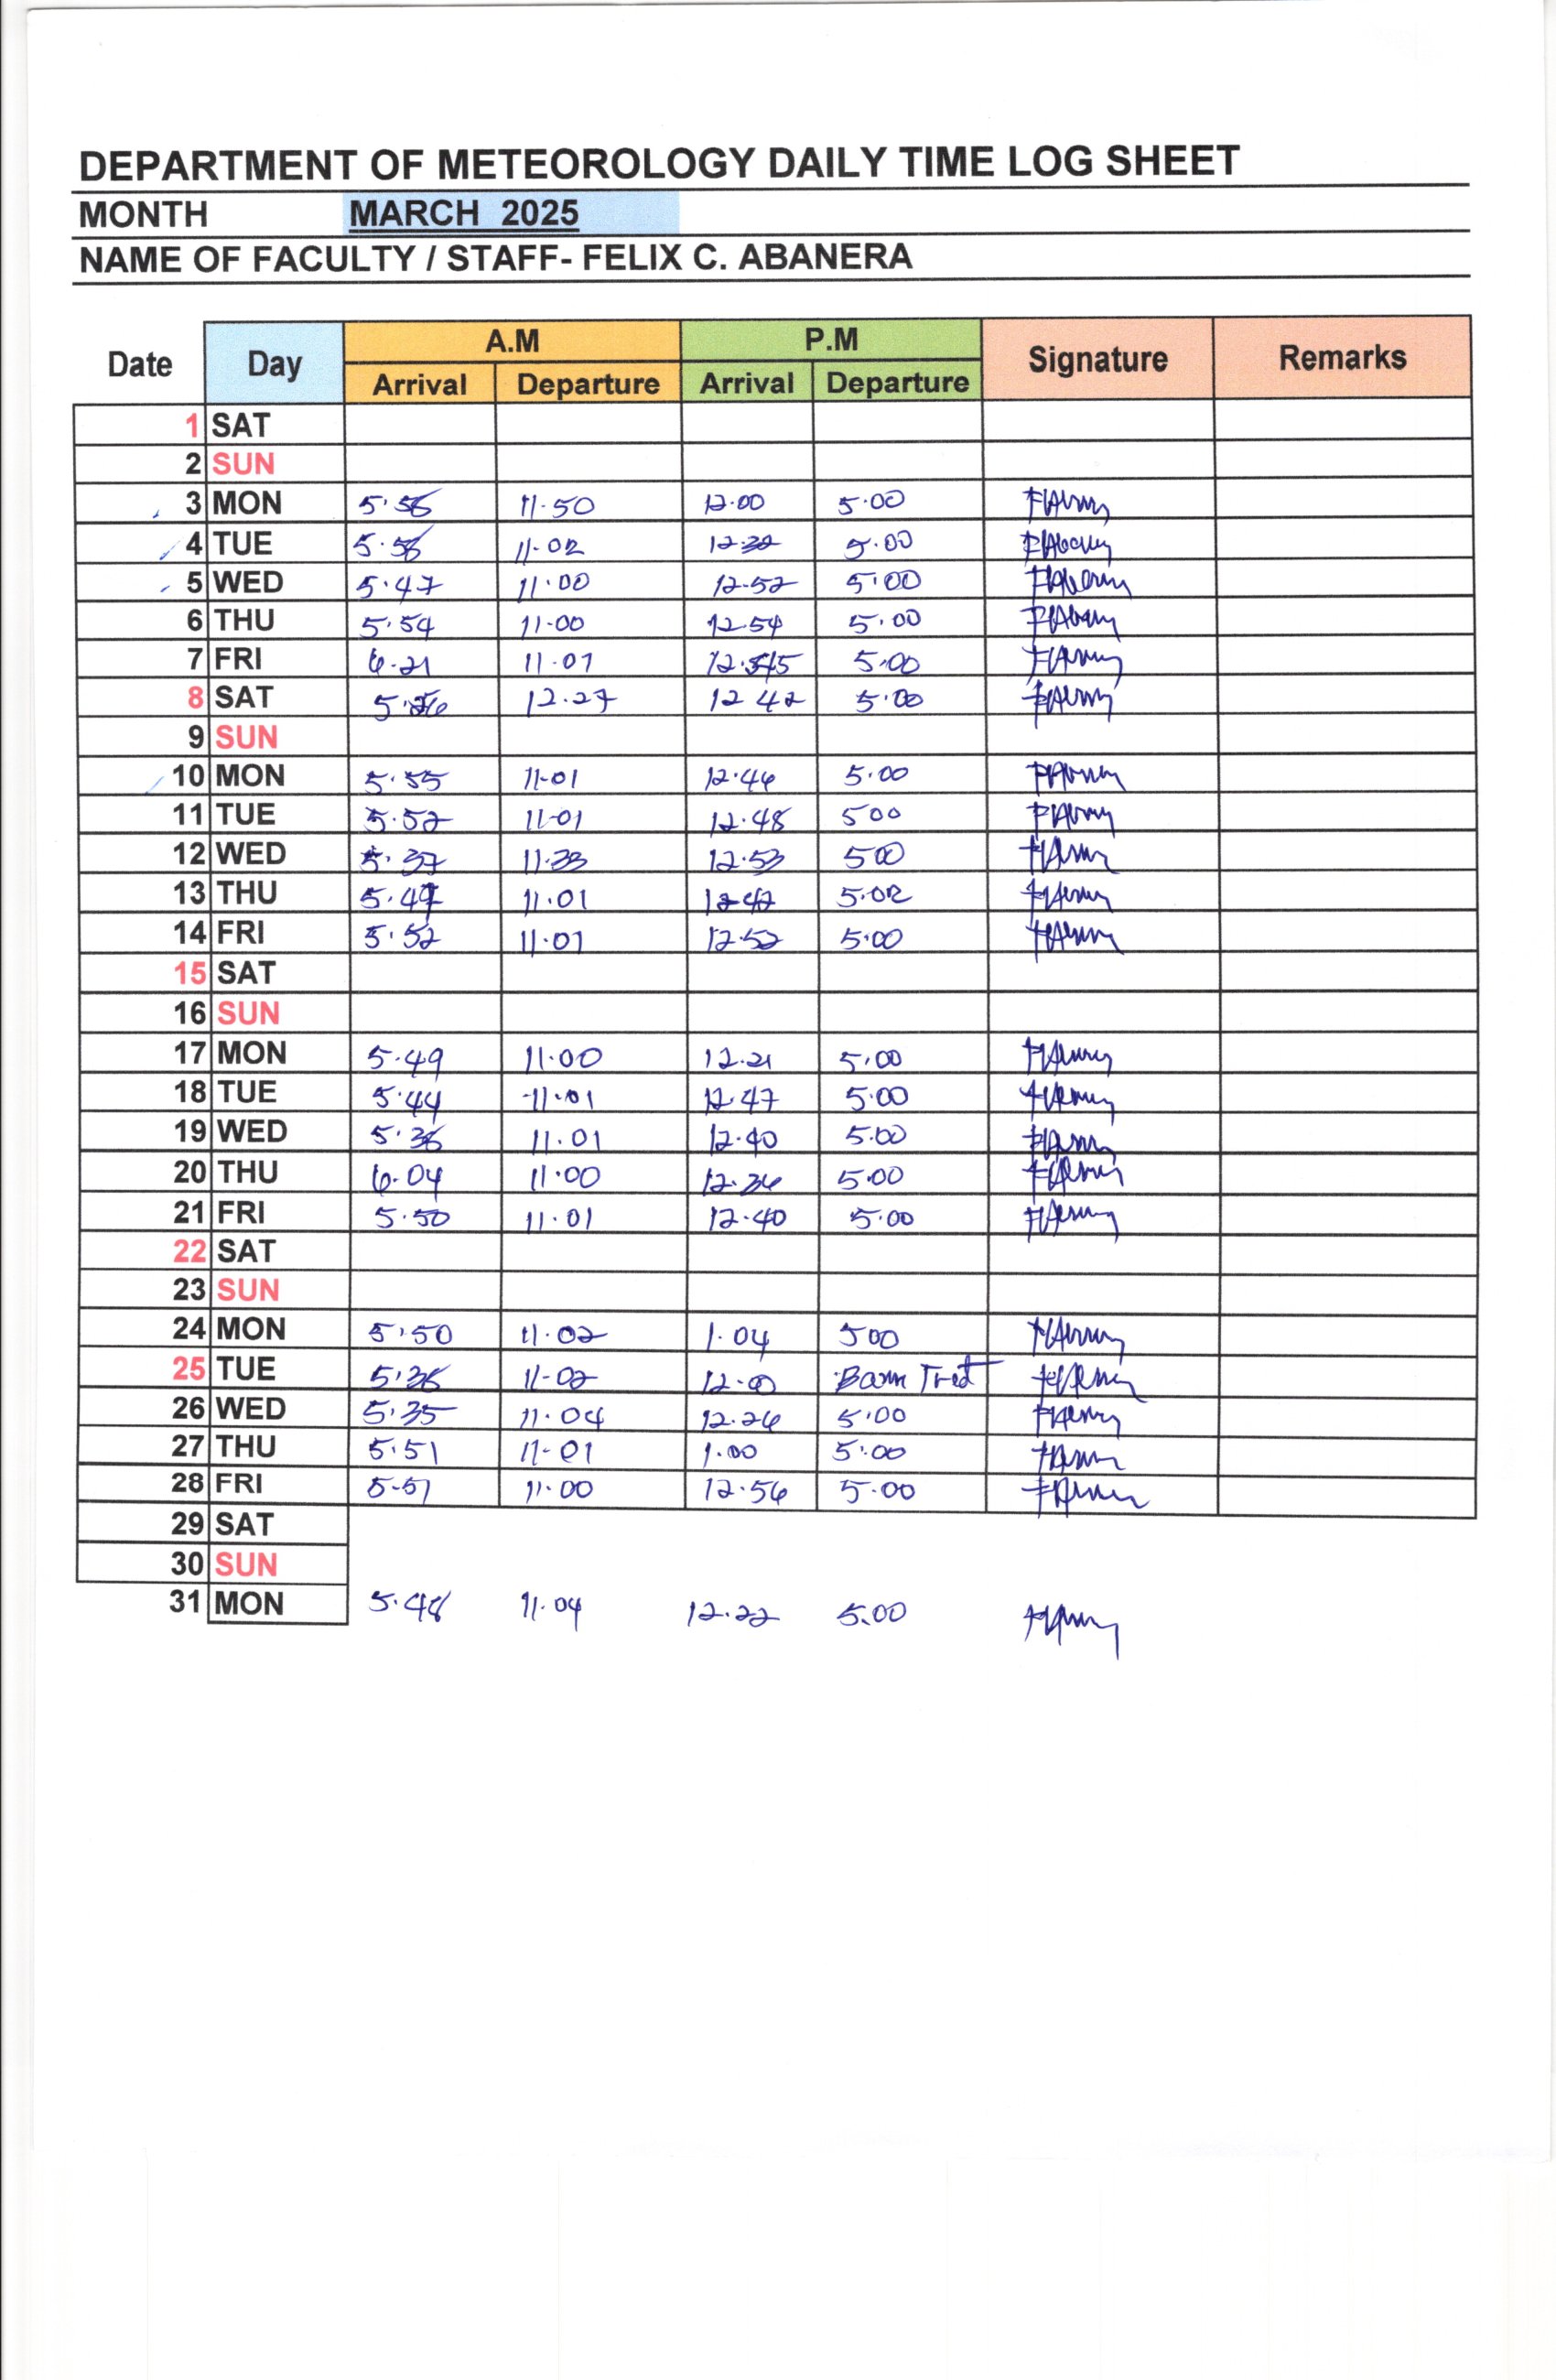 DEPARTMENT OF METEOROLOGY DAILY TIME LOG SHEET
MONTH MARCH 2025
NAME OF FACULTY / STAFF- FELIX C. ABANERA
A.M P.M
Date Day Signature Remarks
Arrival Departure Arrival Departure
1 SAT
2 SUN
3 MON 5:56 11.50 12.00 5.00
4 TUE 5.56 11-02 5.00
5 WED 5.47 11.00 12.52 5:00
6 THU 5.54 11-00 12.54 5.00
7 FRI 6-21 11.01 5.00
8 SAT 12.27 12 42 5.00
9 SUN
10 MON 5.55 11-01 12.46 5.00
11 TUE 5.52 11-01 12.48 500
12 WED 5.37 11.33 12.53 500
13 THU 5.47 11.01 12 42 5.02
14 FRI 5.52 11.01 12.52 5:00
15 SAT
16 SUN
17 MON 5.49 11.00 12.21 5.00
18 TUE 5.44 11.01 12.47 5.00
19 WED 5.36 11.01 12.40 5.00
20 THU 6.04 11.00 12.36 5.00
21 FRI 5.50 11.01 12.40 5.00
22 SAT
23 SUN
24 MON 5.50 11.02 1.04 500
25 TUE 5.36 11-02
26 WED 5.35 11.04 12.26 5.00
27 THU 5.51 11-01 1.00 5.00
28 FRI 5-51 11.00 12.56 5.00
29 SAT
30 SUN
31 MON 5.48 11.04 12.22 5.00